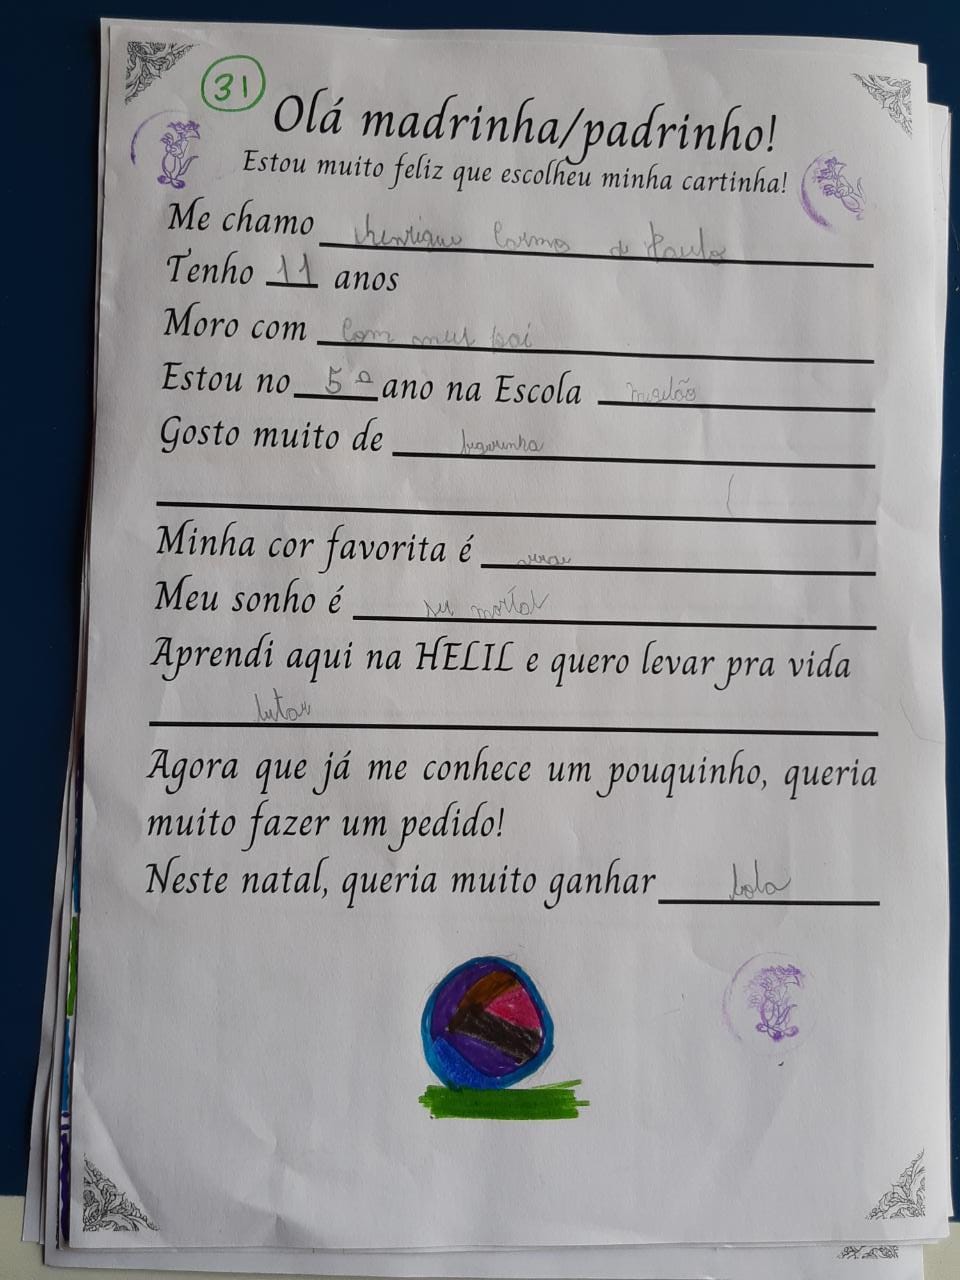 31
Olá madrinha/padrinho!
Estou muito feliz que escolheu minha cartinha!
Me chamo Henrique de Paula
Tenho 11 anos
Moro com com meu pai
Estou no 5º ano na Escola
Gosto muito de figurinha
Minha cor favorita é
Meu sonho é
Aprendi aqui na HELIL e quero levar pra vida
lutar
Agora que já me conhece um pouquinho, queria
muito fazer um pedido!
Neste natal, queria muito ganhar bola